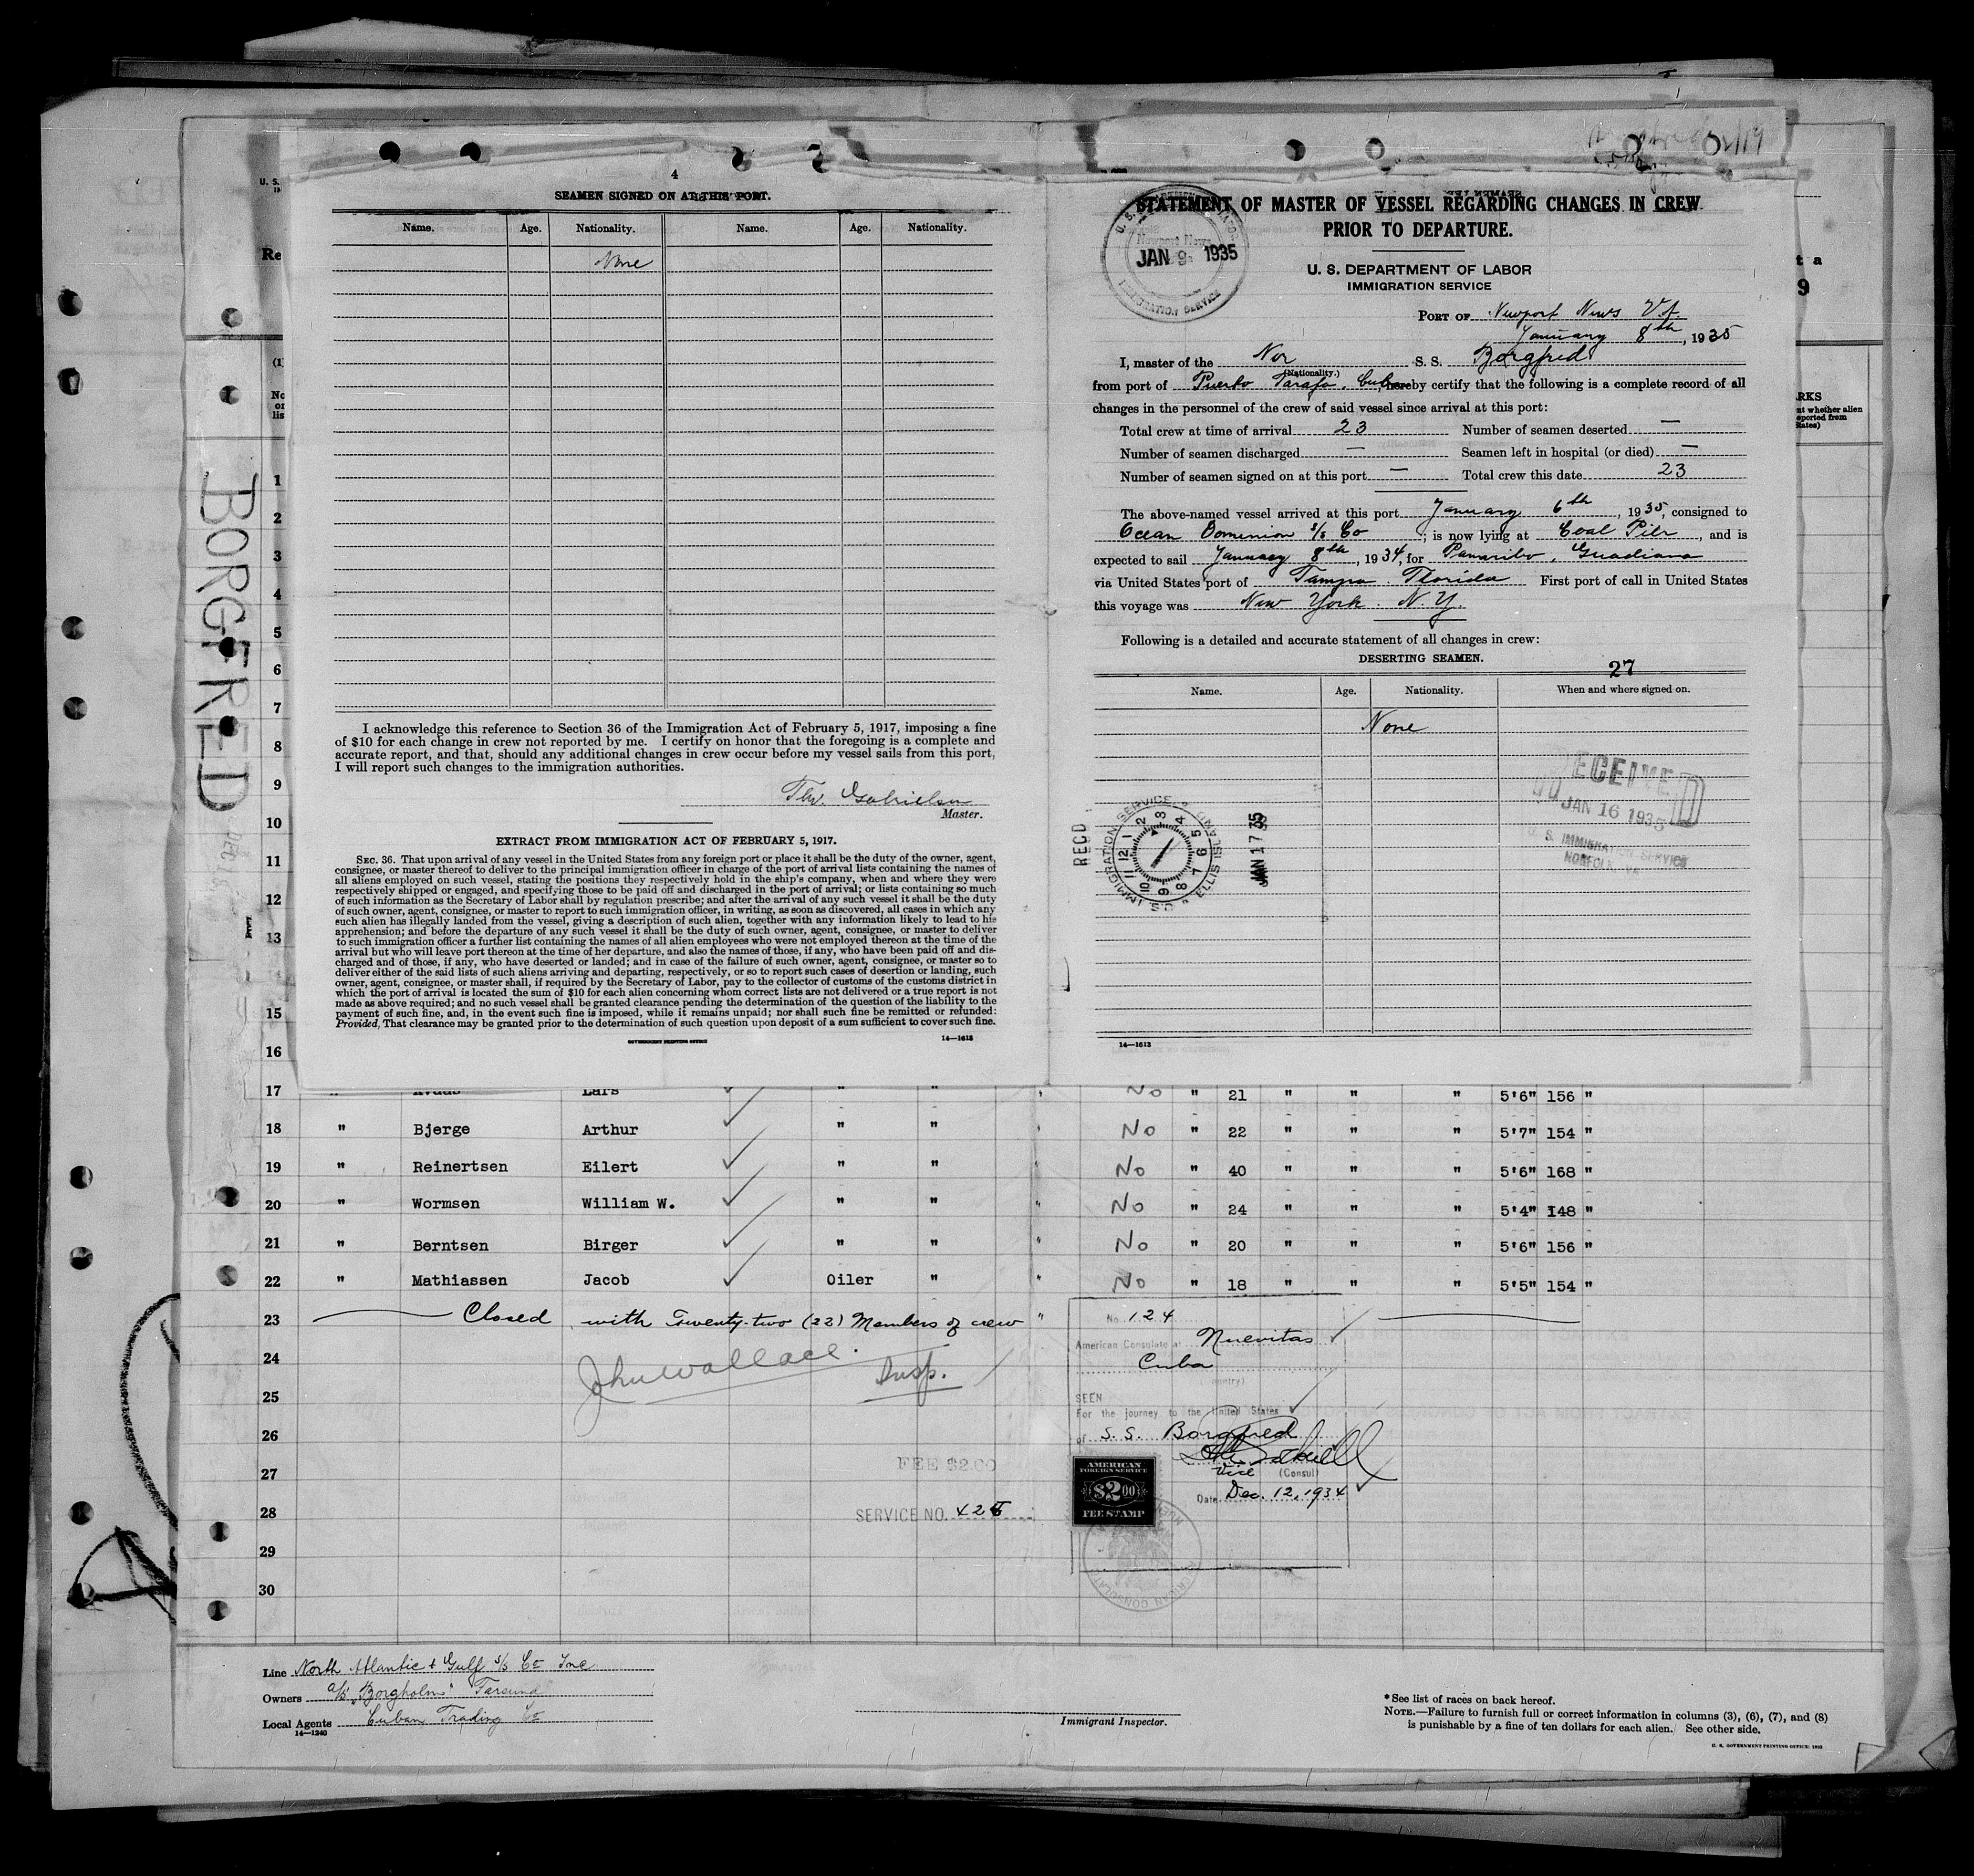 4
SEAMEN SIGNED ON AT THIS PORT.
Name. Age. Nationality. Name. Age. Nationality.
None
I acknowledge this reference to Section 36 of the Immigration Act of February 5, 1917, imposing a fine
of $10 for each change in crew not reported by me. I certify on honor that the foregoing is a complete and
accurate report, and that, should any additional changes in crew occur before my vessel sails from this port,
I will report such changes to the immigration authorities.
Gabrielsen
Master.
EXTRACT FROM IMMIGRATION ACT OF FEBRUARY 5, 1917.
SEC. 36. That upon arrival of any vessel in the United States from any foreign port or place it shall be the duty of the owner, agent,
consignee, or master thereof to deliver to the principal immigration officer in charge of the port of arrival lists containing the names of
all aliens employed on such vessel, stating the positions they respectively hold in the ship's company, when and where they were
respectively shipped or engaged, and specifying those to be paid off and discharged in the port of arrival; or lists containing so much
of such information as the Secretary of Labor shall by regulation prescribe; and after the arrival of any such vessel it shall be the duty
of such owner, agent, consignee, or master to report to such immigration officer, in writing, as soon as discovered, all cases in which any
such alien has illegally landed from the vessel, giving a description of such alien, together with any information likely to lead to his
apprehension; and before the departure of any such vessel it shall be the duty of such owner, agent, consignee, or master to deliver
to such immigration officer a further list containing the names of all alien employees who were not employed thereon at the time of the
arrival but who will leave port thereon at the time of her departure, and also the names of those, if any, who have been paid off and dis-
charged and of those, if any, who have deserted or landed; and in case of the failure of such owner, agent, consignee, or master so to
deliver either of the said lists of such aliens arriving and departing, respectively, or so to report such cases of desertion or landing, such
owner, agent, consignee, or master shall, if required by the Secretary of Labor, pay to the collector of customs of the customs district in
which the port of arrival is located the sum of $10 for each alien concerning whom correct lists are not delivered or a true report is not
made as above required; and no such vessel shall be granted clearance pending the determination of the question of the liability to the
payment of such fine, and, in the event such fine is imposed, while it remains unpaid; nor shall such fine be remitted or refunded:
Provided, That clearance may be granted prior to the determination of such question upon deposit of a sum sufficient to cover such fine.
GOVERNMENT PRINTING OFFICE 14—1613
STATEMENT OF MASTER OF VESSEL REGARDING CHANGES IN CREW
PRIOR TO DEPARTURE.
Newport News
JAN 9 1935
IMMIGRATION SERVICE
U. S. DEPARTMENT OF LABOR
IMMIGRATION SERVICE
PORT OF Newport News Va.
January 8th, 1935
I, master of the Nor S. S. Borgfred
(Nationality.)
from port of Puerto Tarafa, Cuba, hereby certify that the following is a complete record of all
changes in the personnel of the crew of said vessel since arrival at this port:
Total crew at time of arrival 23 Number of seamen deserted —
Number of seamen discharged — Seamen left in hospital (or died) —
Number of seamen signed on at this port — Total crew this date 23
The above-named vessel arrived at this port January 6th, 1935, consigned to
Ocean Dominion S/S Co; is now lying at Coal Pier, and is
expected to sail January 8th, 1934, for Pamaribo, Guadiana
via United States port of Tampa, Florida First port of call in United States
this voyage was New York. N.Y.
Following is a detailed and accurate statement of all changes in crew:
DESERTING SEAMEN.
27
Name. Age. Nationality. When and where signed on.
None
RECEIVED
JAN 16 1935
U. S. IMMIGRATION SERVICE
NORFOLK
RECD
U.S. IMMIGRATION SERVICE ELLIS ISLAND
JAN 17 35
14—1613
BORGFRED
U. S.
Re
(1)
No
or
lis
t a
9
RKS
nt whether alien
eported from
States)
1
2
3
4
5
6
7
8
9
10
11
12
13
15
16
17 " Lars " " " No " 21 " " " 5'6" 156 "
18 " Bjerge Arthur " " " No " 22 " " " 5'7" 154 "
19 " Reinertsen Eilert " " " No " 40 " " " 5'6" 168 "
20 " Wormsen William W. " " " No " 24 " " " 5'4" 148 "
21 " Berntsen Birger " " " No " 20 " " " 5'6" 156 "
22 " Mathiassen Jacob Oiler " " No " 18 " " " 5'5" 154 "
23 Closed with Twenty-two (22) Members of crew "
24 John Wallace. Insp.
25
26
27
28
29
30
No. 124
American Consulate at Nuevitas
Cuba
(Country)
SEEN
For the journey to the United States
of S. S. Borgfred
Vice (Consul)
Date Dec. 12, 1934
AMERICAN
FOREIGN SERVICE
$2.00
FEE STAMP
FEE $2.00
SERVICE NO.
Line North Atlantic & Gulf S/S Co Inc
Owners a/s "Borgholm" Farsund
Local Agents Cuban Trading Co
14—1240
Immigrant Inspector.
* See list of races on back hereof.
NOTE.—Failure to furnish full or correct information in columns (3), (6), (7), and (8)
is punishable by a fine of ten dollars for each alien. See other side.
U. S. GOVERNMENT PRINTING OFFICE: 1932